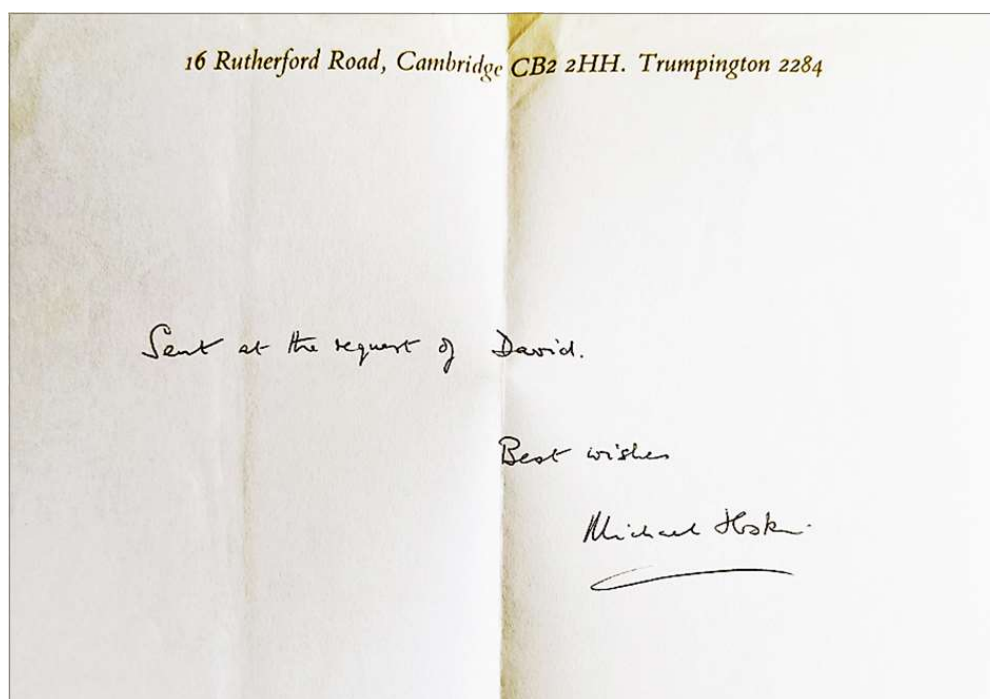 16 Rutherford Road, Cambridge CB2 2HH. Trumpington 2284
Sent at the request of David.
Best wishes
Michael Hoskin